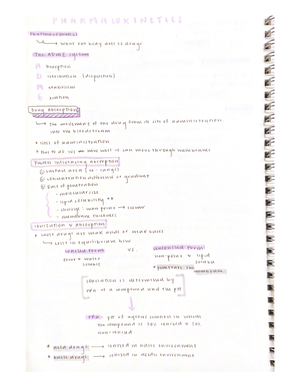 PHARMACOKINETICS
Pharmacokinetics
what the body does to drugs
The ADME system
A bsorption
D istribution (disposition)
M etabolism
E xcretion
Drug absorption
the movement of the drug from its site of administration
into the bloodstream
* site of administration
* how to get we have want it can move through membranes
Factors influencing absorption
① surface area (↑ = rapid)
② concentration adhered or gradient
③ rate of penetration
- molecular size
- lipid solubility
- charge : non-polar → faster
- membrane thickness
ionization & absorption
* most drugs are weak acids or weak bases
exist in equilibrium b/w
ionized form vs. unionized form
polar & water soluble
non-polar & lipid soluble
* penetrate the membrane
ionization is determined by
pKa of a compound and the pH
pKa : pH of aqueous solution in which
the compound is 50% ionized & 50%
non-ionized
* acid drugs: → ionized in basic environment
* basic drugs: → ionized in acidic environment